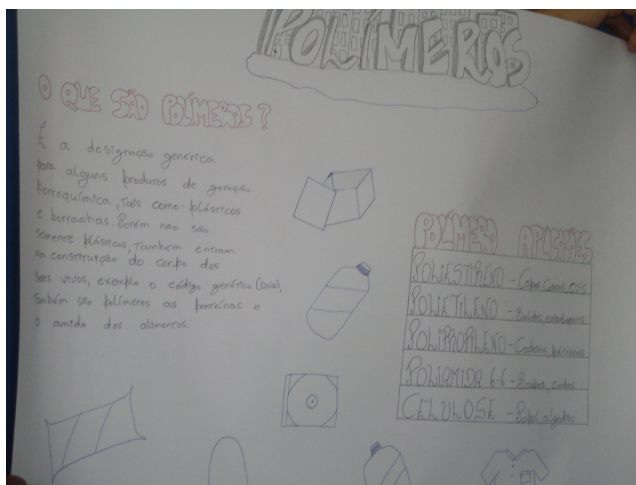 POLÍMEROS
O QUE SÃO POLÍMEROS?
É a designação genérica
para alguns produtos de geração
petroquímica, tais como: plásticos
e borrachas. Porém não são
somente plásticos, também entram
na constituição do corpo dos
seres vivos, exemplo o código genético
também são polímeros as proteínas e
o amido dos alimentos.
POLÍMERO APLICAÇÕES
POLIESTIRENO - Copos,
POLIETILENO - Baldes, embalagens
POLIPROPILENO - Cadeiras, poltronas
POLIAMIDA 66 - Roupas, cordas
CELULOSE - Papel, algodão